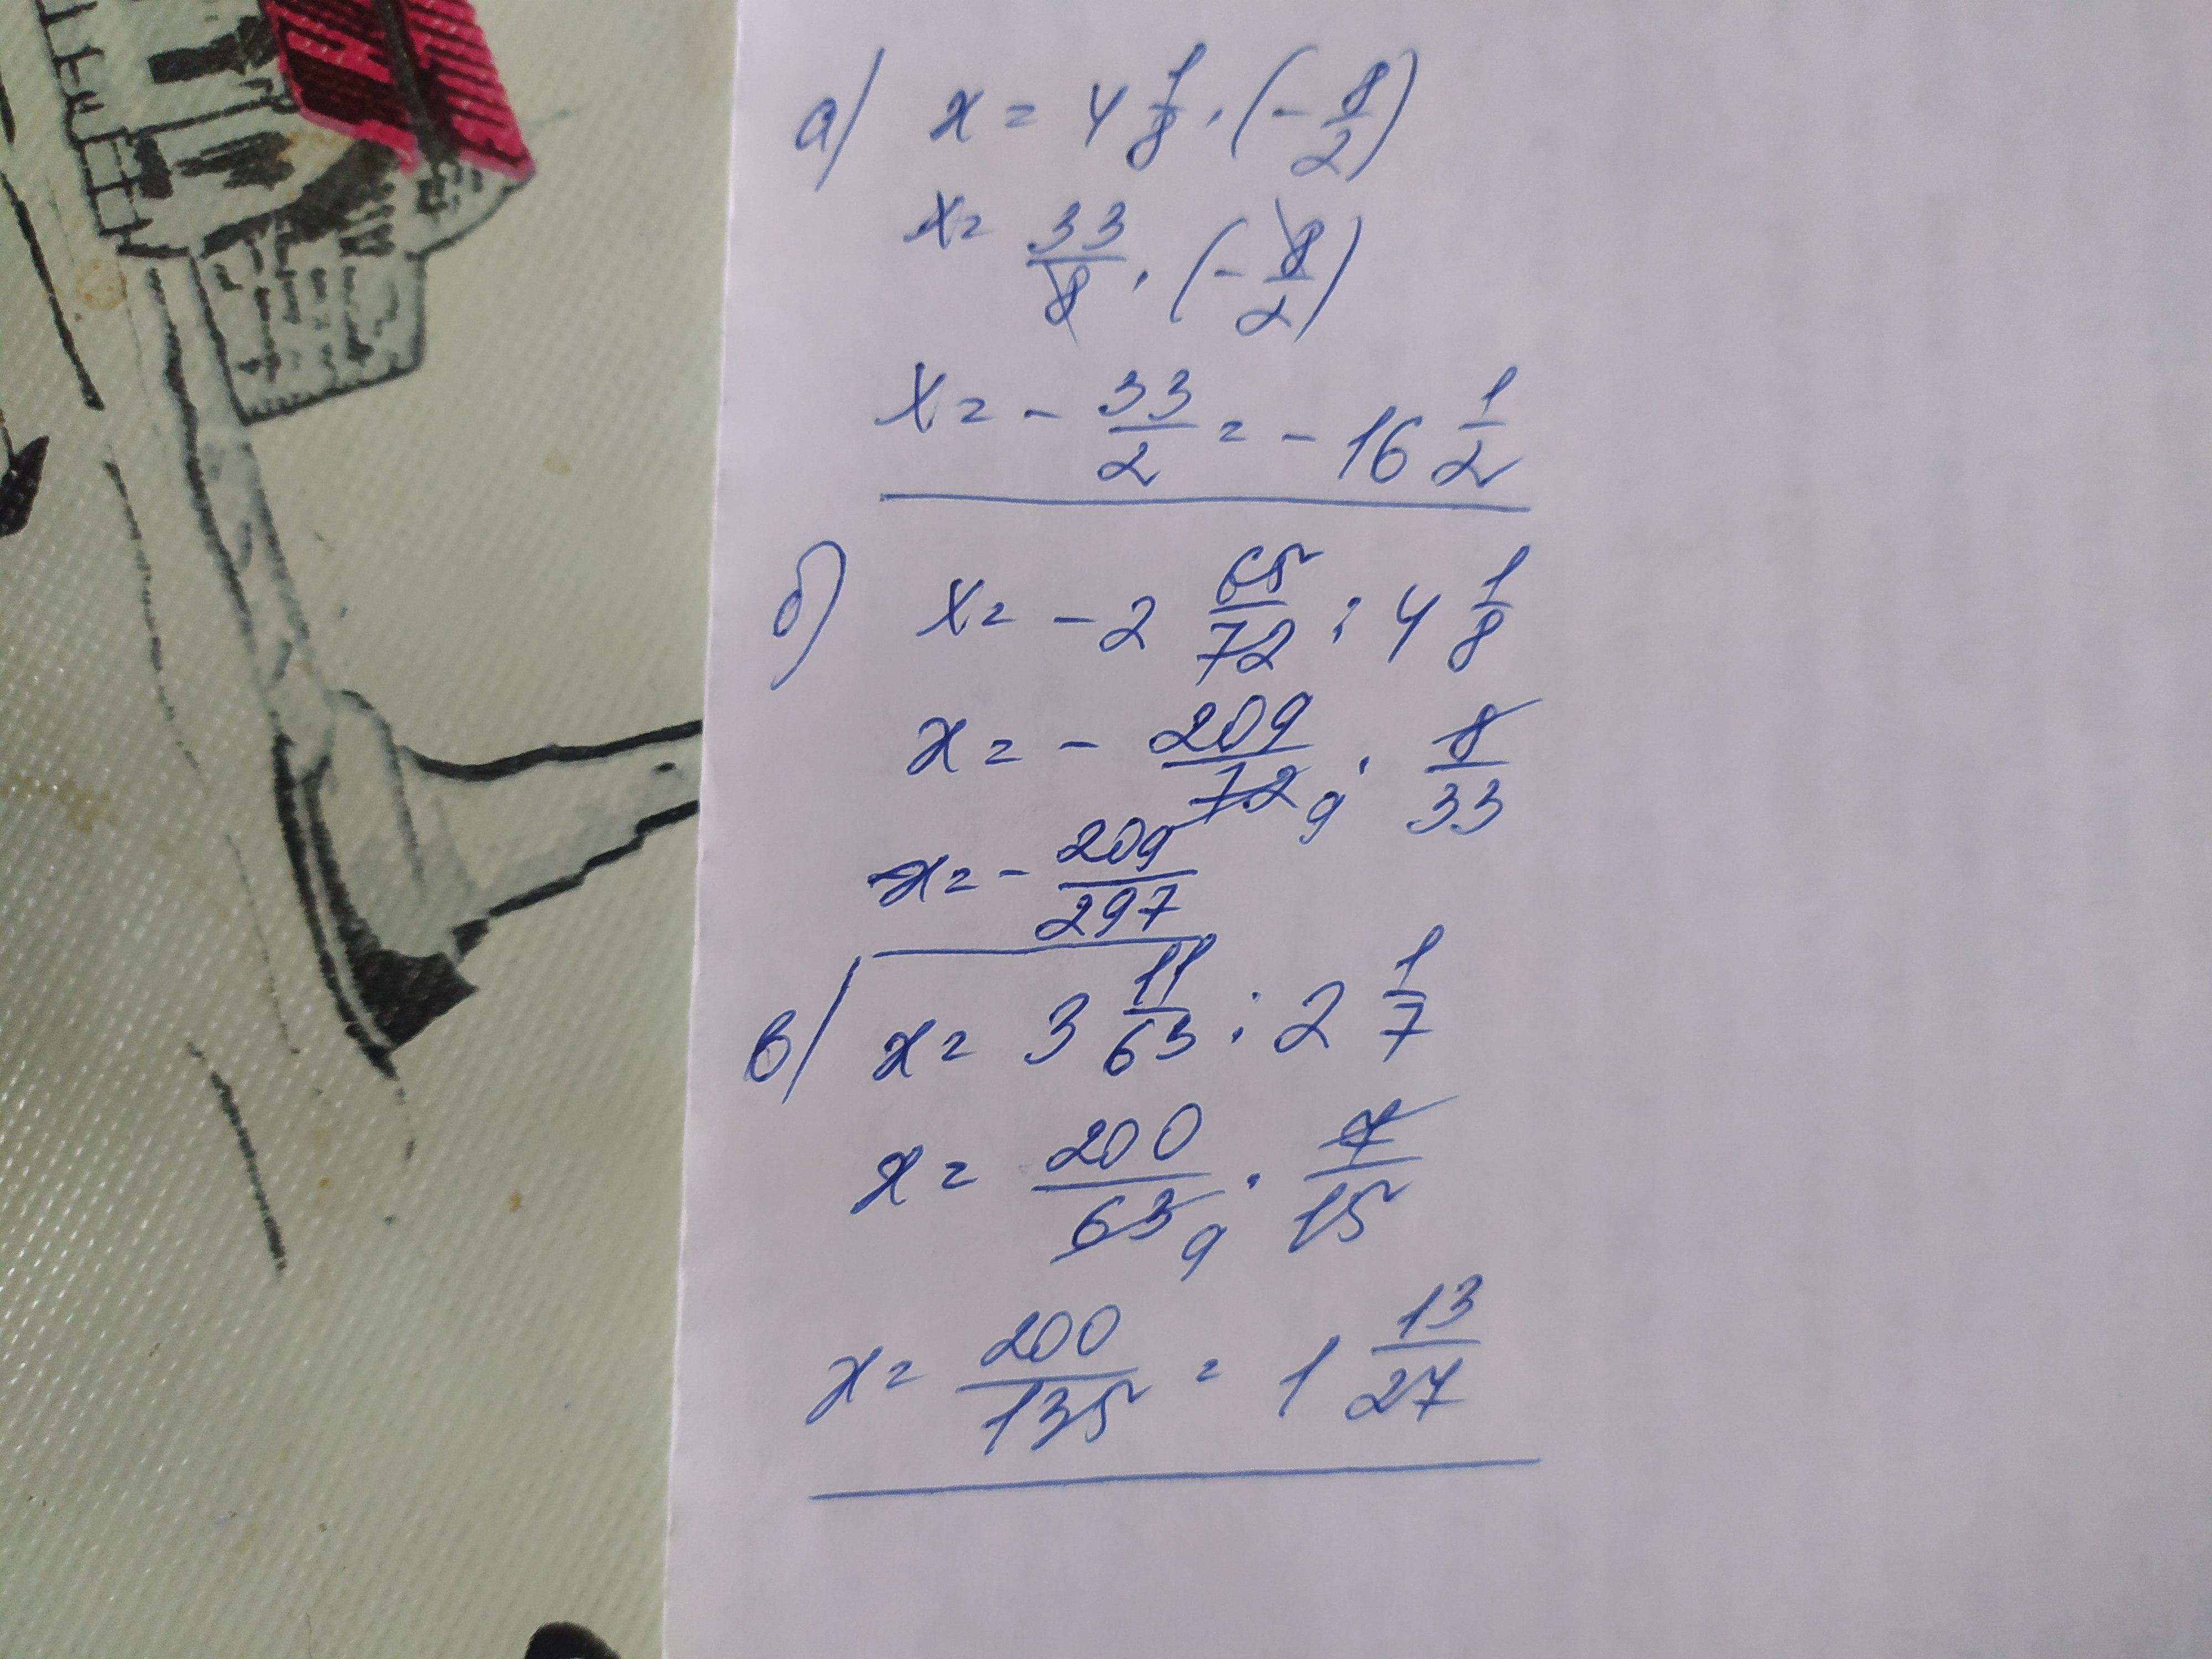 а) x = 4 1/8 · (- 8/2)
x = 33/8 · (- 8/2)
x = - 33/2 = - 16 1/2
б) x = - 2 65/72 : 4 1/8
x = - 209/72 9 · 8/33
x = - 209/297
в) x = 3 11/63 : 2 1/7
x = 200/63 9 · 7/15
x = 200/135 = 1 13/27